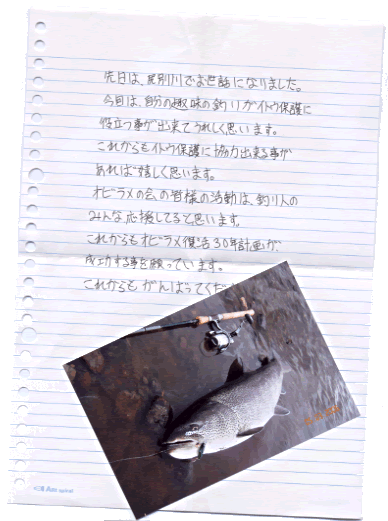 先日は、尻別川でお世話になりました。
今回は、自分の趣味の釣りがイトウ保護に
役立つ事が出来てうれしく思います。
これからもイトウ保護に協力出来る事が
あれば嬉しく思います。
オビラメの会の皆様の活動は、釣り人の
みんな応援してると思います。
これからもオビラメ復活30年計画が
成功する事を願っています。
これからも がんばってくだ